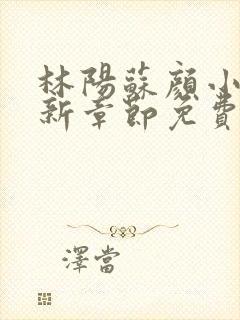 林陽蘇顏小
新章節免費
澤當